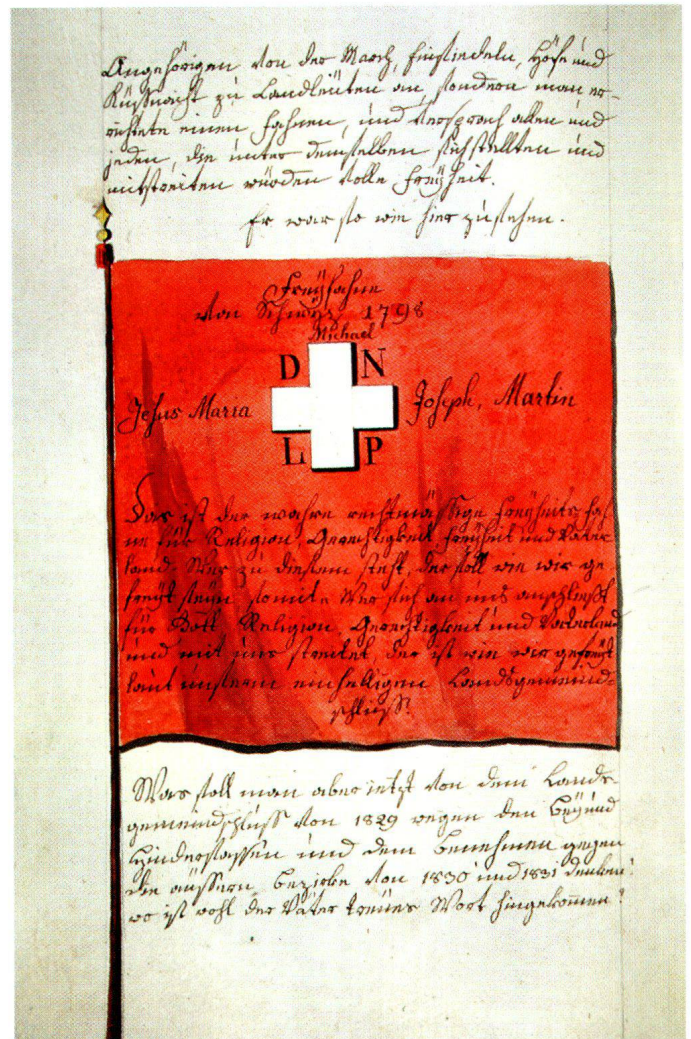 Angehörigen von der March, Einsiedeln, Höfe und
Küssnacht zu Landleüten an, sondern man er-
richtete einen Fahnen, und versprach allen und
jeden, die unter demselben sich stellten und
mitstreiten würden volle Freÿheit.
Er war so wie hier zu sehen.
Freÿfahne
von Schwÿz 1798
Michael
D N
Jesus Maria Joseph, Martin
L P
Das ist der wahre rechtmässige Freÿheits fah
ne für Religion Gerechtigkeit Freÿheit und Vater
land. Wer zu diesem steht, der soll wie wir ge
freÿt seÿn somit. Wer sich an uns anschließt
für Gott Religion Gerechtigkeit und Vaterland
und mit uns streitet, der ist wie wir gefreÿt
laut unserm einhelligen Landsgemeind-
schluss.
Was soll man aber jetzt von dem Lands-
gemeindschluss von 1829 wegen den Beÿund
Hindersassen und dem benehmen gegen
die äussern Bezirke von 1830 und 1831 denken?
wo ist wohl der Väter treües Wort hingekommen?